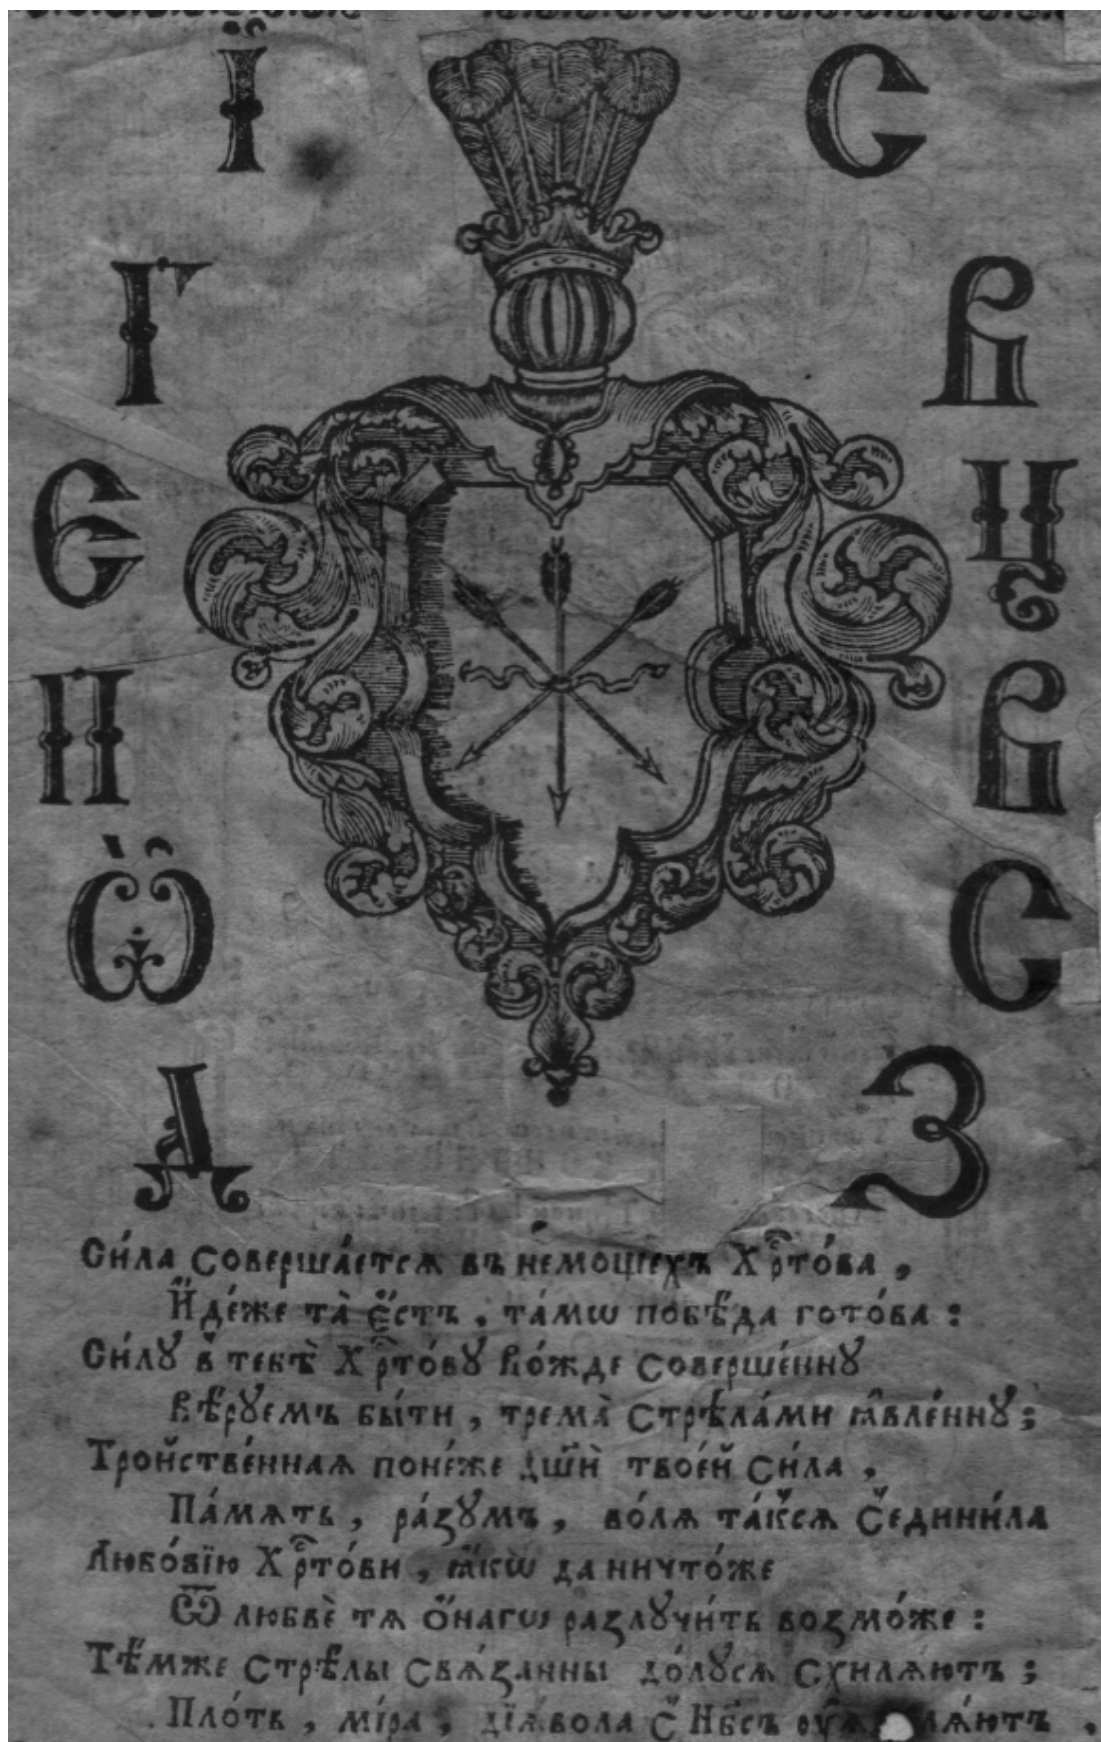 Ї С
Г В
Є Ц
П В
Ѿ С
Д З
Си́ла соверша́етсѧ въ немощехъ Хрⷭ҇то́ва ,
И҆де́же та̀ є҆́стъ , та́мѡ побѣ́да гото́ва :
Си́лꙋ в̾ тебѣ̀ Хрⷭ҇то́вꙋ Во́жде соверше́ннꙋ
Вѣ́рꙋемъ бы́ти , трема̀ стрѣла́ми ꙗ҆вле́ннꙋ ;
Тройстве́ннаѧ поне́же дш҃ѝ твое́й си́ла ,
Па́мѧть , ра́зꙋмъ , во́лѧ та́кⸯсѧ с̾едини́ла
Любо́вїю Хрⷭ҇то́ви , ꙗ҆́кѡ да ничто́же
Ѿ любвѐ тѧ ѻ҆́нагѡ разлꙋчи́ть возмо́же :
Тѣ́мже стрѣлы свѧ́занны до́лꙋсѧ схилѧ́ютъ ;
Пло́ть , мі́ра , дїѧ́вола с̾ Нб҃съ